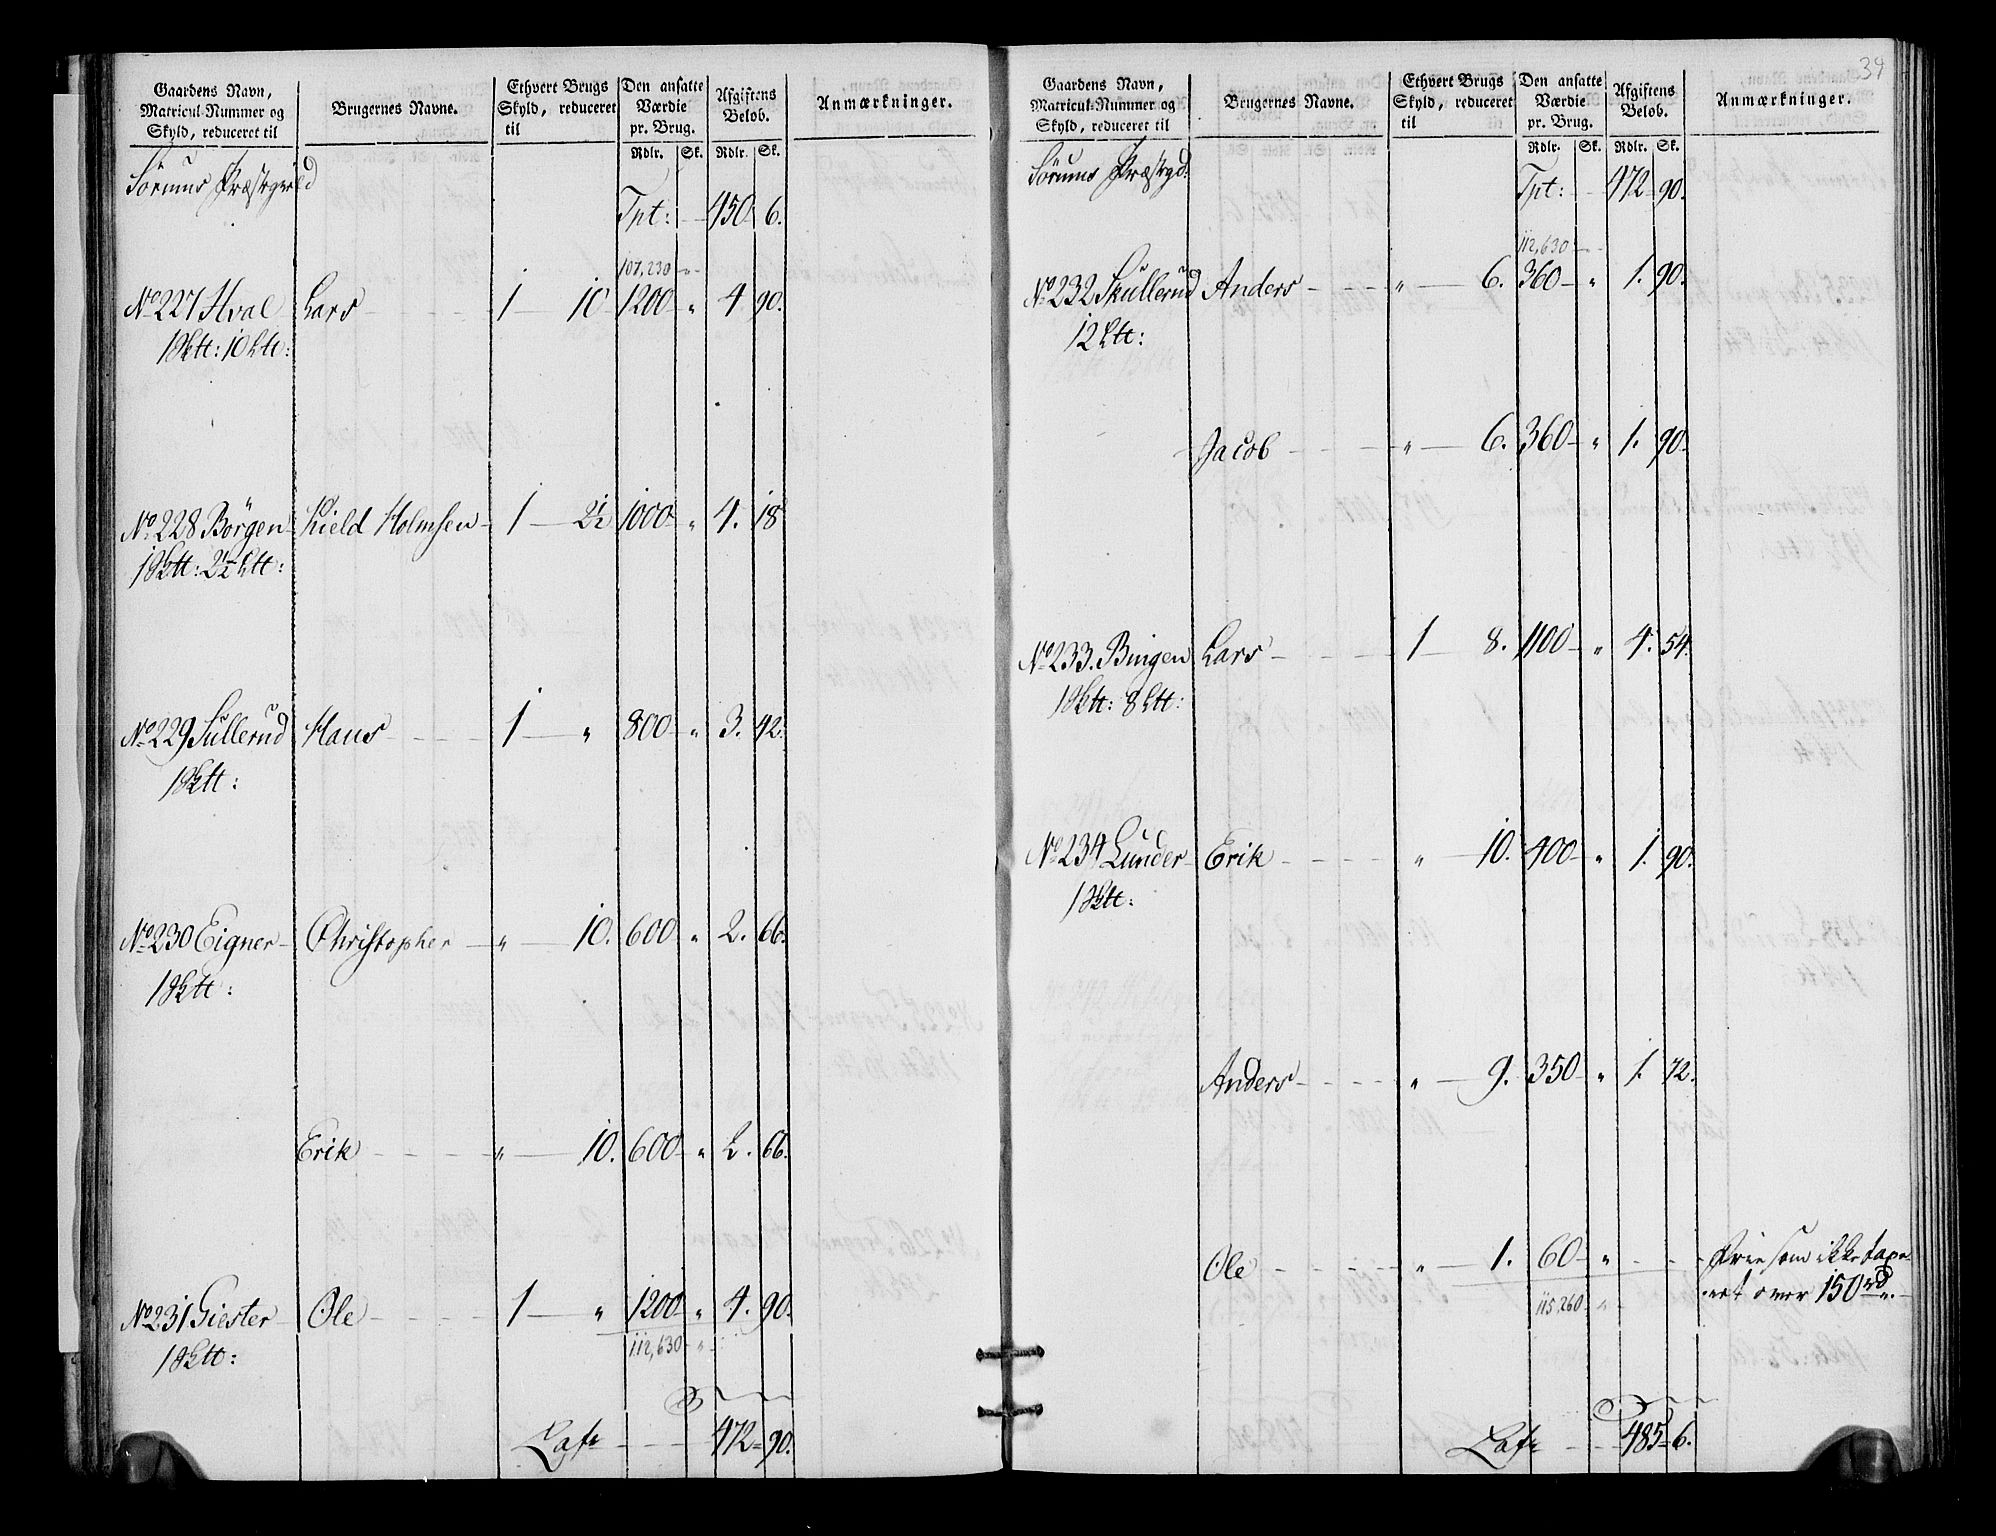 Gaardens Navn, Matricul-Nummer og Skyld, reduceret til | Brugernes Navne. | Ethvert Brugs Skyld, reduceret til | Den ansatte Værdie pr. Brug. | Afgiftens Beløb. | Anmærkninger.
Rdlr. | Sk. | Rdlr. | Sk.
Sørums Præstegield
Tpt: — 450 6.
107,230 "
No 227 Hval Lars 1 10 1200 " 4 90.
1 Sktt: 10 Ltt:
No 228 Börgen Kield Holmsen 1 2½ 1000 " 4. 18
1 Sktt: 2½ Ltt:
No 229 Sullerud Hans 1 " 800 " 3. 42.
1 Sktt:
No 230 Eigner Christopher " 10. 600 " 2. 66.
1 Sktt:
Erik " 10. 600 " 2. 66.
No 231 Giester Ole 1 " 1200 " 4. 90.
112,630 "
1 Sktt:
Lats 472 90.
34
Gaardens Navn, Matricul-Nummer og Skyld, reduceret til | Brugernes Navne. | Ethvert Brugs Skyld, reduceret til | Den ansatte Værdie pr. Brug. | Afgiftens Beløb. | Anmærkninger.
Rdlr. | Sk. | Rdlr. | Sk.
Sørums Præstegd:
Tpt: 472 90.
112,630
No 232 Skullerud Anders " 6. 360 " 1. 90.
12 Ltt:
Jacob " 6. 360 " 1. 90.
No 233. Bingen Lars 1 8. 1100 " 4. 54.
1 Sktt: 8 Ltt:
No 234 Lunder Erik " 10. 400 " 1. 90.
1 Sktt:
Anders " 9. 350 " 1. 72.
Ole " 1. 60 " Frie som ikke taxe-
115,260 " ret over 150 rd.
Lats 485 6.